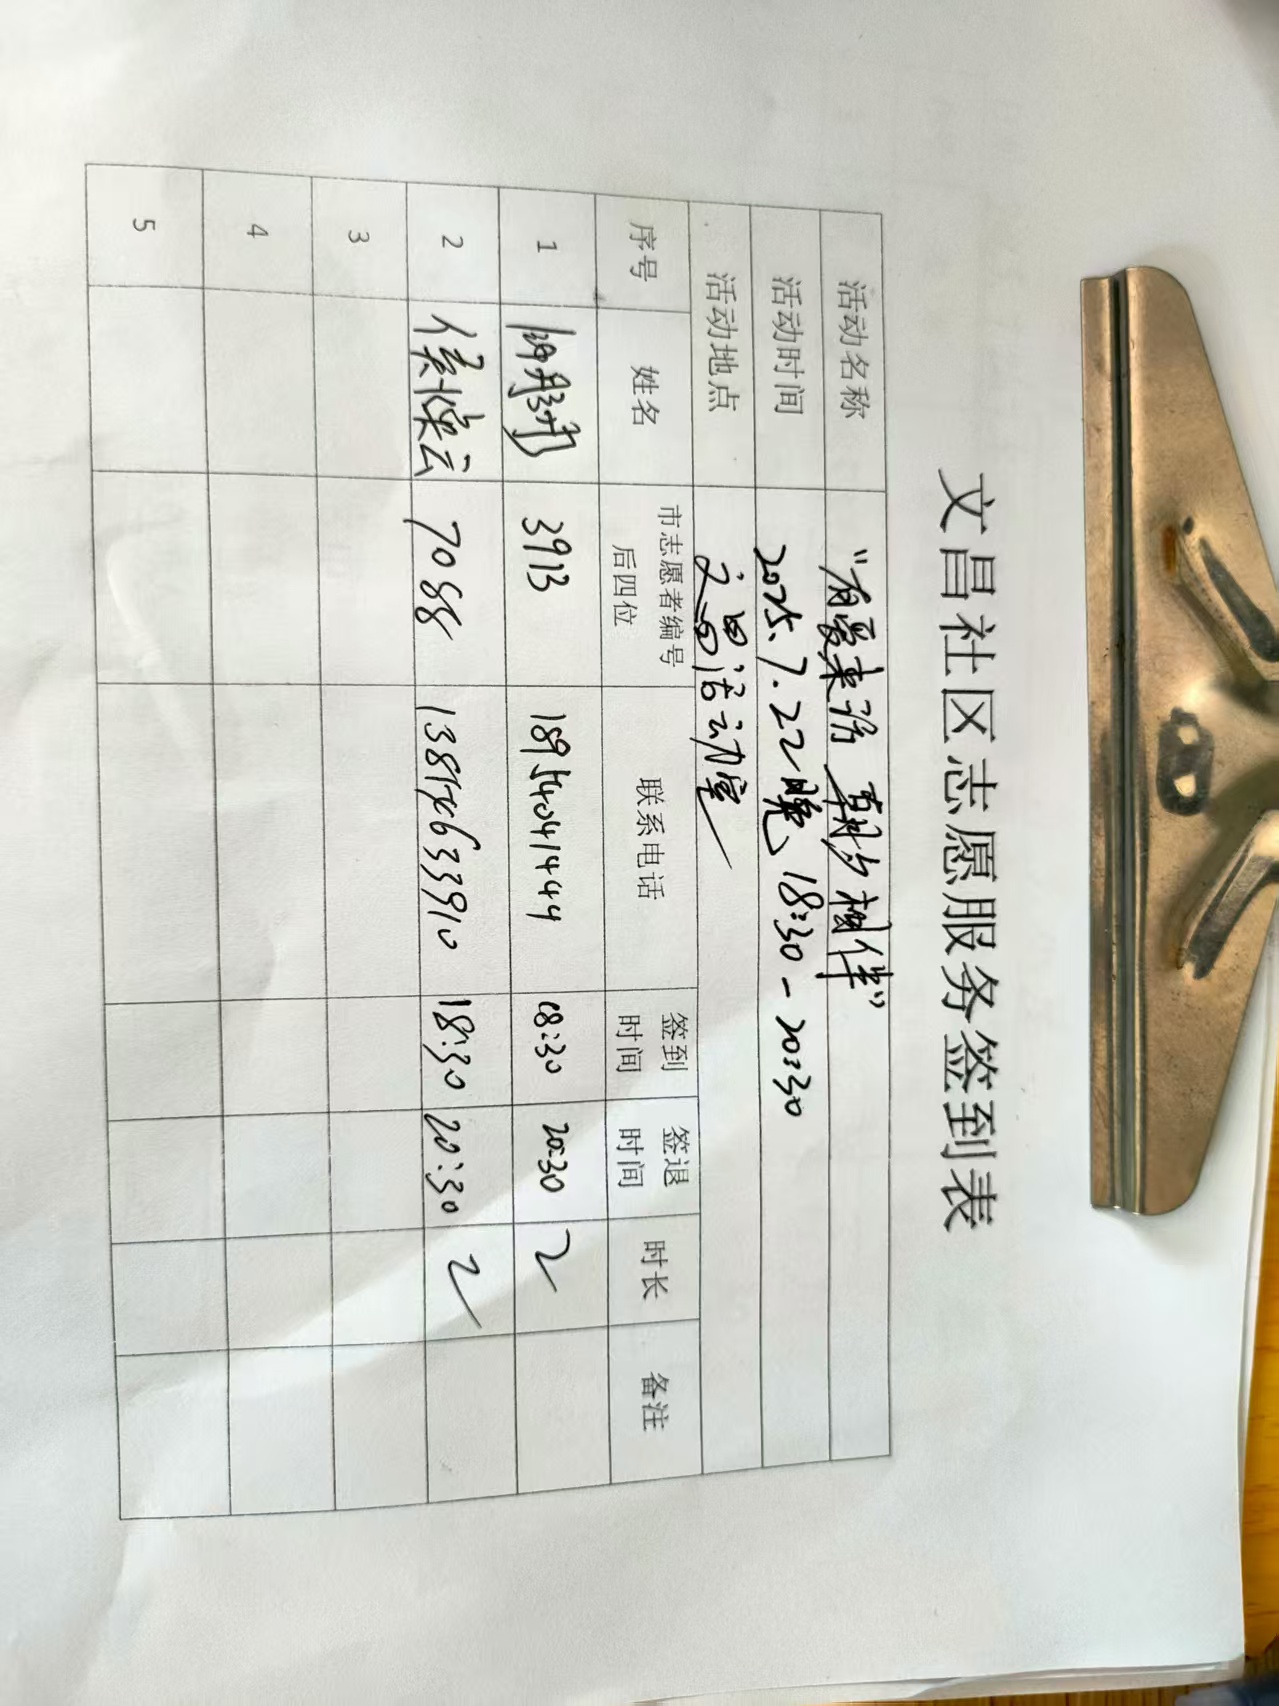 文昌社区志愿服务签到表
活动名称 "有爱来访 朝夕相伴"
活动时间 2025.7.22晚 18:30-20:30
活动地点 文昌活动室
序号 姓名 市志愿者编号后四位 联系电话 签到时间 签退时间 时长 备注
1 3913 18954041444 18:30 20:30 2
2 侯怏云 7088 20:30 2 18:30
3
4
5